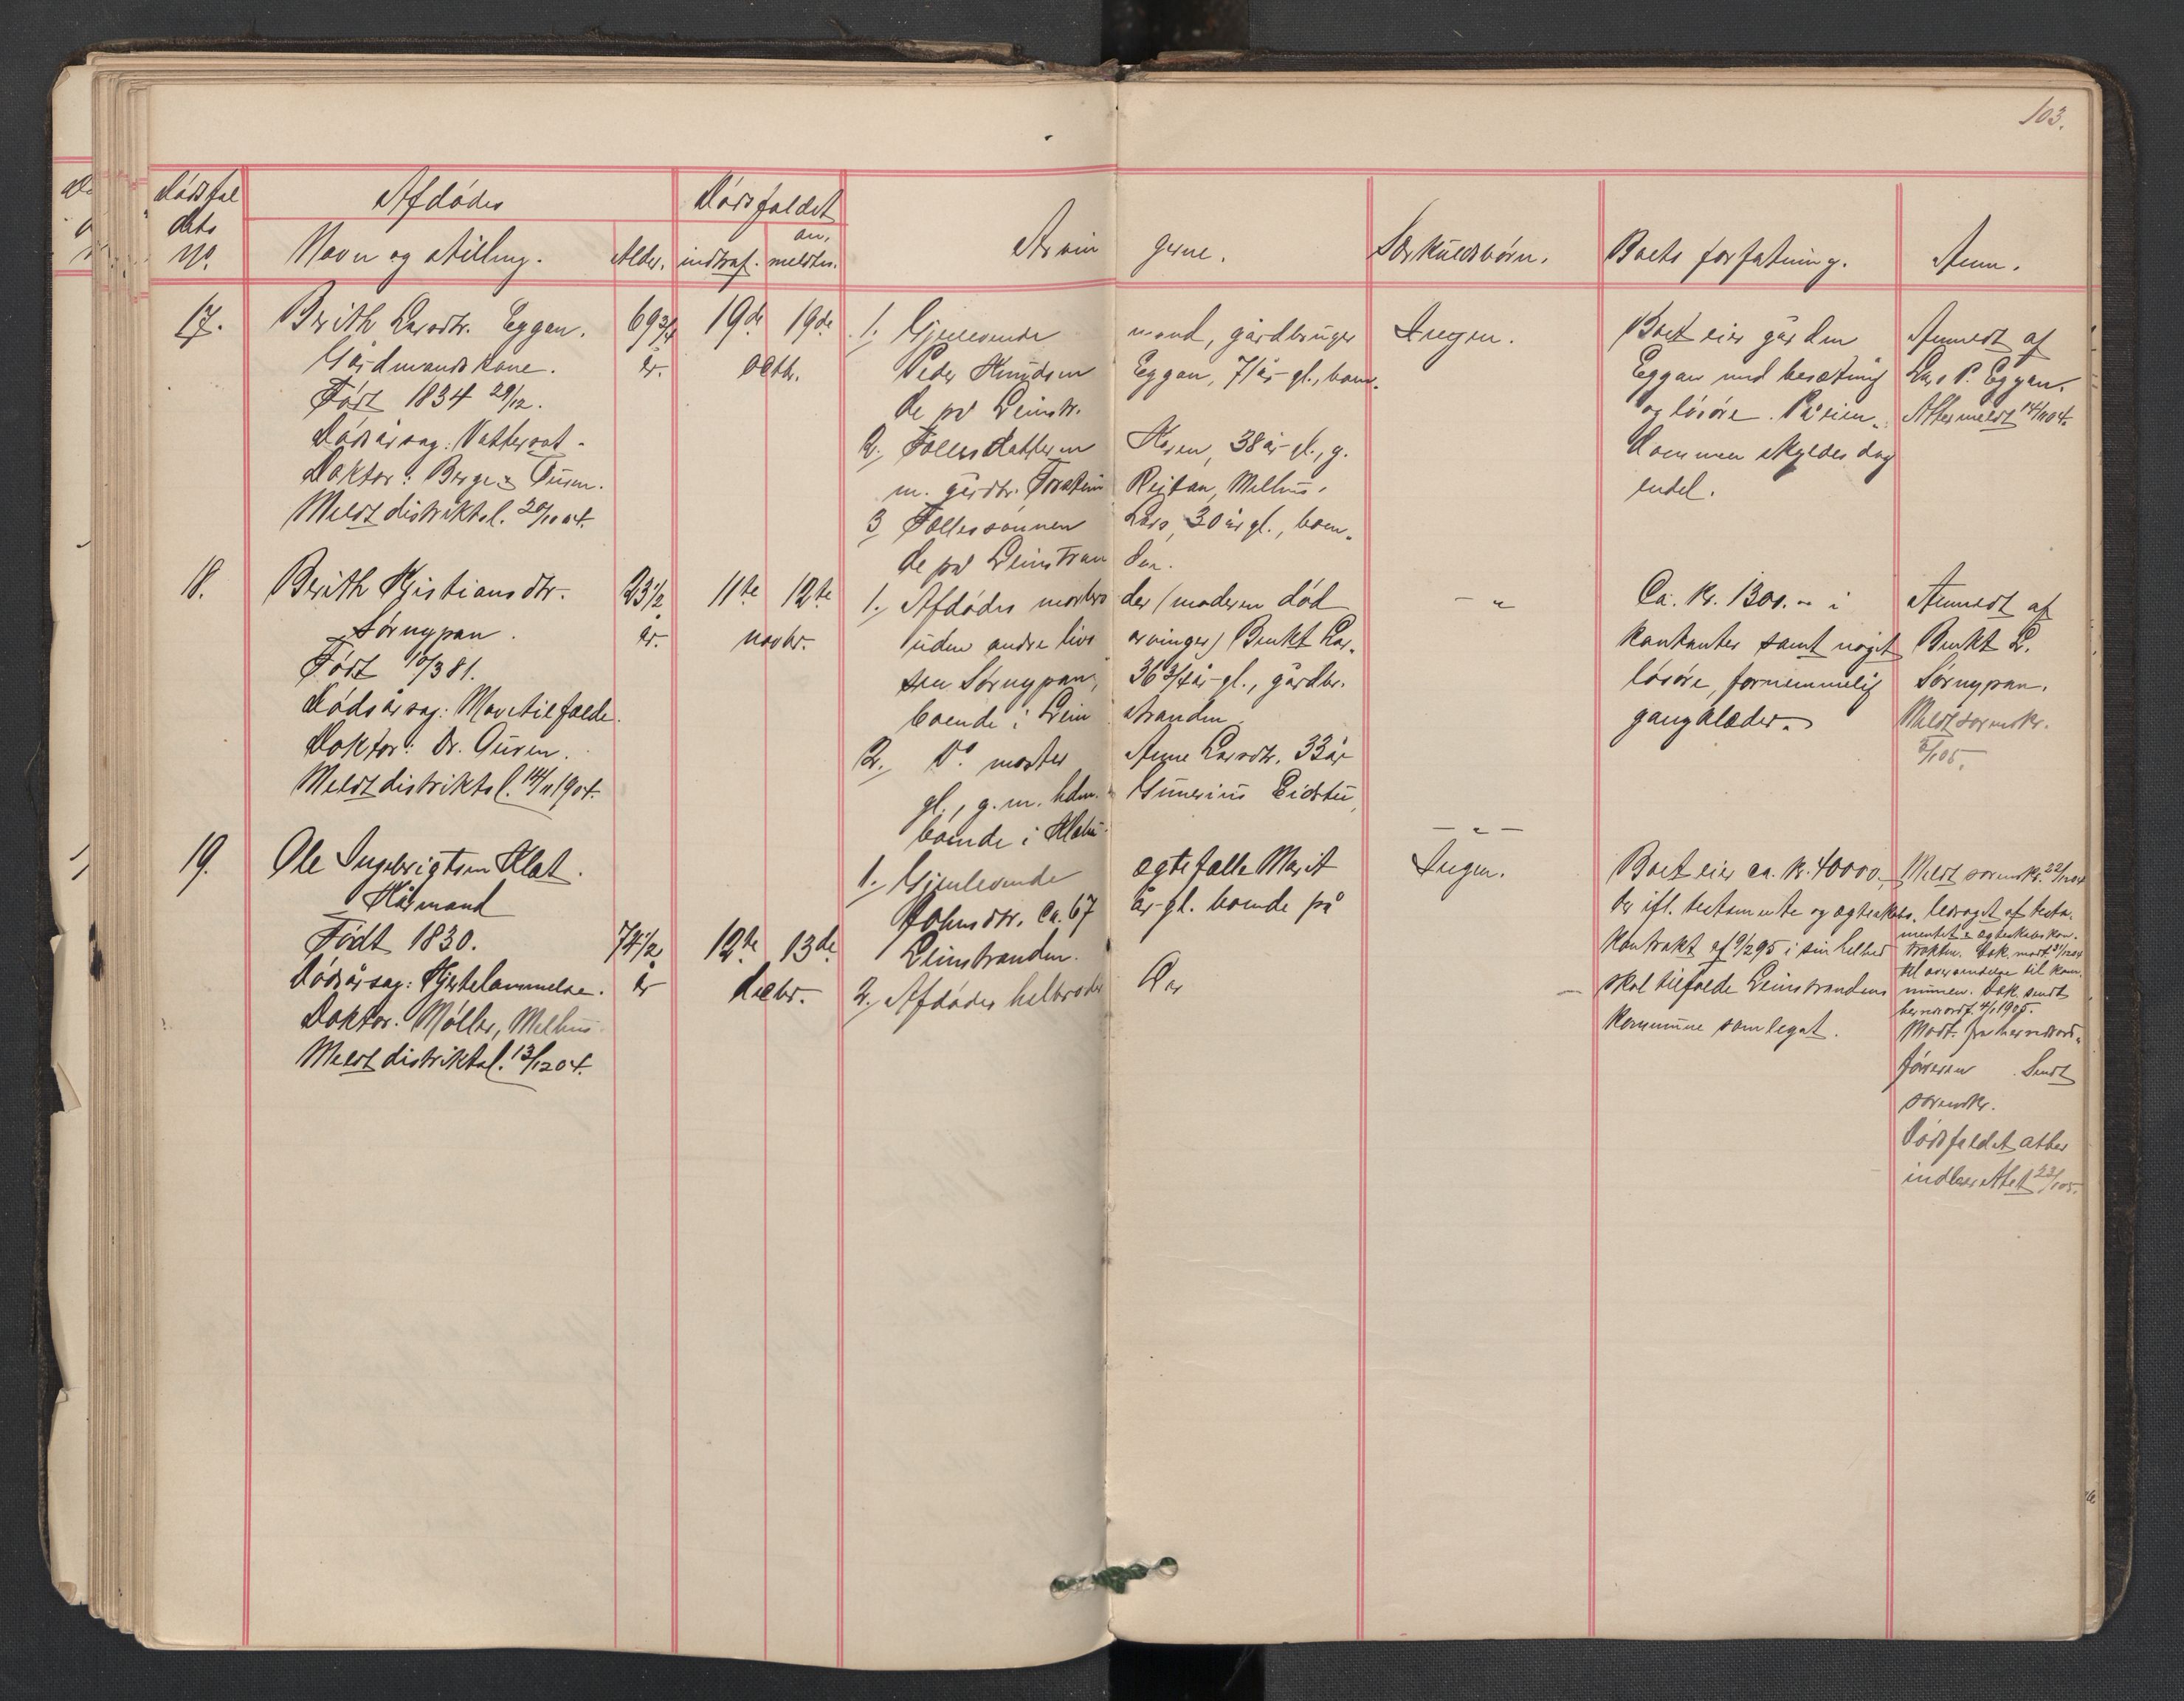 103.
Dødsfal
dets
No.
Afdødes
Navn og stilling.
Alder.
Dødsfaldet
indtraf.
an,
meldtes.
Arvin gerne.
Særkuldsbørn.
Boets forfatning.
Anm.
17.
Berith Larsdtr. Eggen.
Gårdmandskone.
Født 1834 29/12.
Dødsårsag: Vattersot.
Doktor: Berge & Ousen.
Meldt distriktsl. 20/10 04.
69 3/4
år.
19de 19de
octbr.
1. Gjenlevende mand, gårdbruger
Peder Knudsen Eggan, 71 år gl., boen,
de på Leinstr.
2. Fællesdatteren Karen, 38 år gl., g.
m. gårdbr. Rejtan, Melhus.
3 Fællessønnen Lars, 30 år gl., boen,
de på Leinstran den.
Ingen.
Boet eier gården
Eggan med besætning
og løsøre. På eien,
dommen skyldes dog
endel.
Anmeldt af
Lars P. Eggan.
Attermeldt 14/11 04.
18.
Berith Kristiansdtr.
Sørnypan.
Født 10/3 81.
Dødsårsag: Mavetilfælde.
Doktor: Dr. Ousen.
Meldt distriktsl. 14/11 1904.
23 1/2
år.
11te 12te
novbr.
1. Afdødes morbro der (moderen død
uden andre livs arvinger) Benkt Lar,
sen Sørnypan, 36 3/4 år gl., gårdbr.
boende i Lein stranden.
2. Do. moster Anne Larsdtr. 33 år
gl., g. m. hdm. Gunerius Eidstu,
boende i Klæbu.
- " -
- " -
Ca. kr. 1300.- i
kontanter samt noget
løsøre, fornemmelig
gangklæder.
Anmeldt af
Benkt L.
Sørnypan.
Meldt sorenskr.
3/1 05.
19.
Ole Ingebrigtsen Klæt.
Kårmand
Født 1830.
Dødsårsag: Hjertelammelse.
Doktor: Møller, Melhus
Meldt distriktsl. 13/12 04.
74 1/2
år
12te 13de
decbr.
1. Gjenlevende ægtefælle Marit
Johnsdtr. ca. 67 år gl. boende på
Leinstranden.
2. Afdødes helbroder
Ingen.
Boet eier ca. kr. 40000.-
der ifl. testamente og ægteskabs,
kontrakt af 9/2 95 i sin helhed
skal tilfalde Leinstrandens
kommune som legat.
Meldt sorenskr. 22/12 04
ledsaget af testa,
mentet & ægteskabskon,
trakten. Dok. modt. 31/12 04
til oversendelse til kom,
munen. Dok. sendt
herredsordf. 4/1 1905.
Modt. fra herredsord,
føreren. Sendt
sorenskr.
Dødsfaldet atter
indberettet 23/1 05.